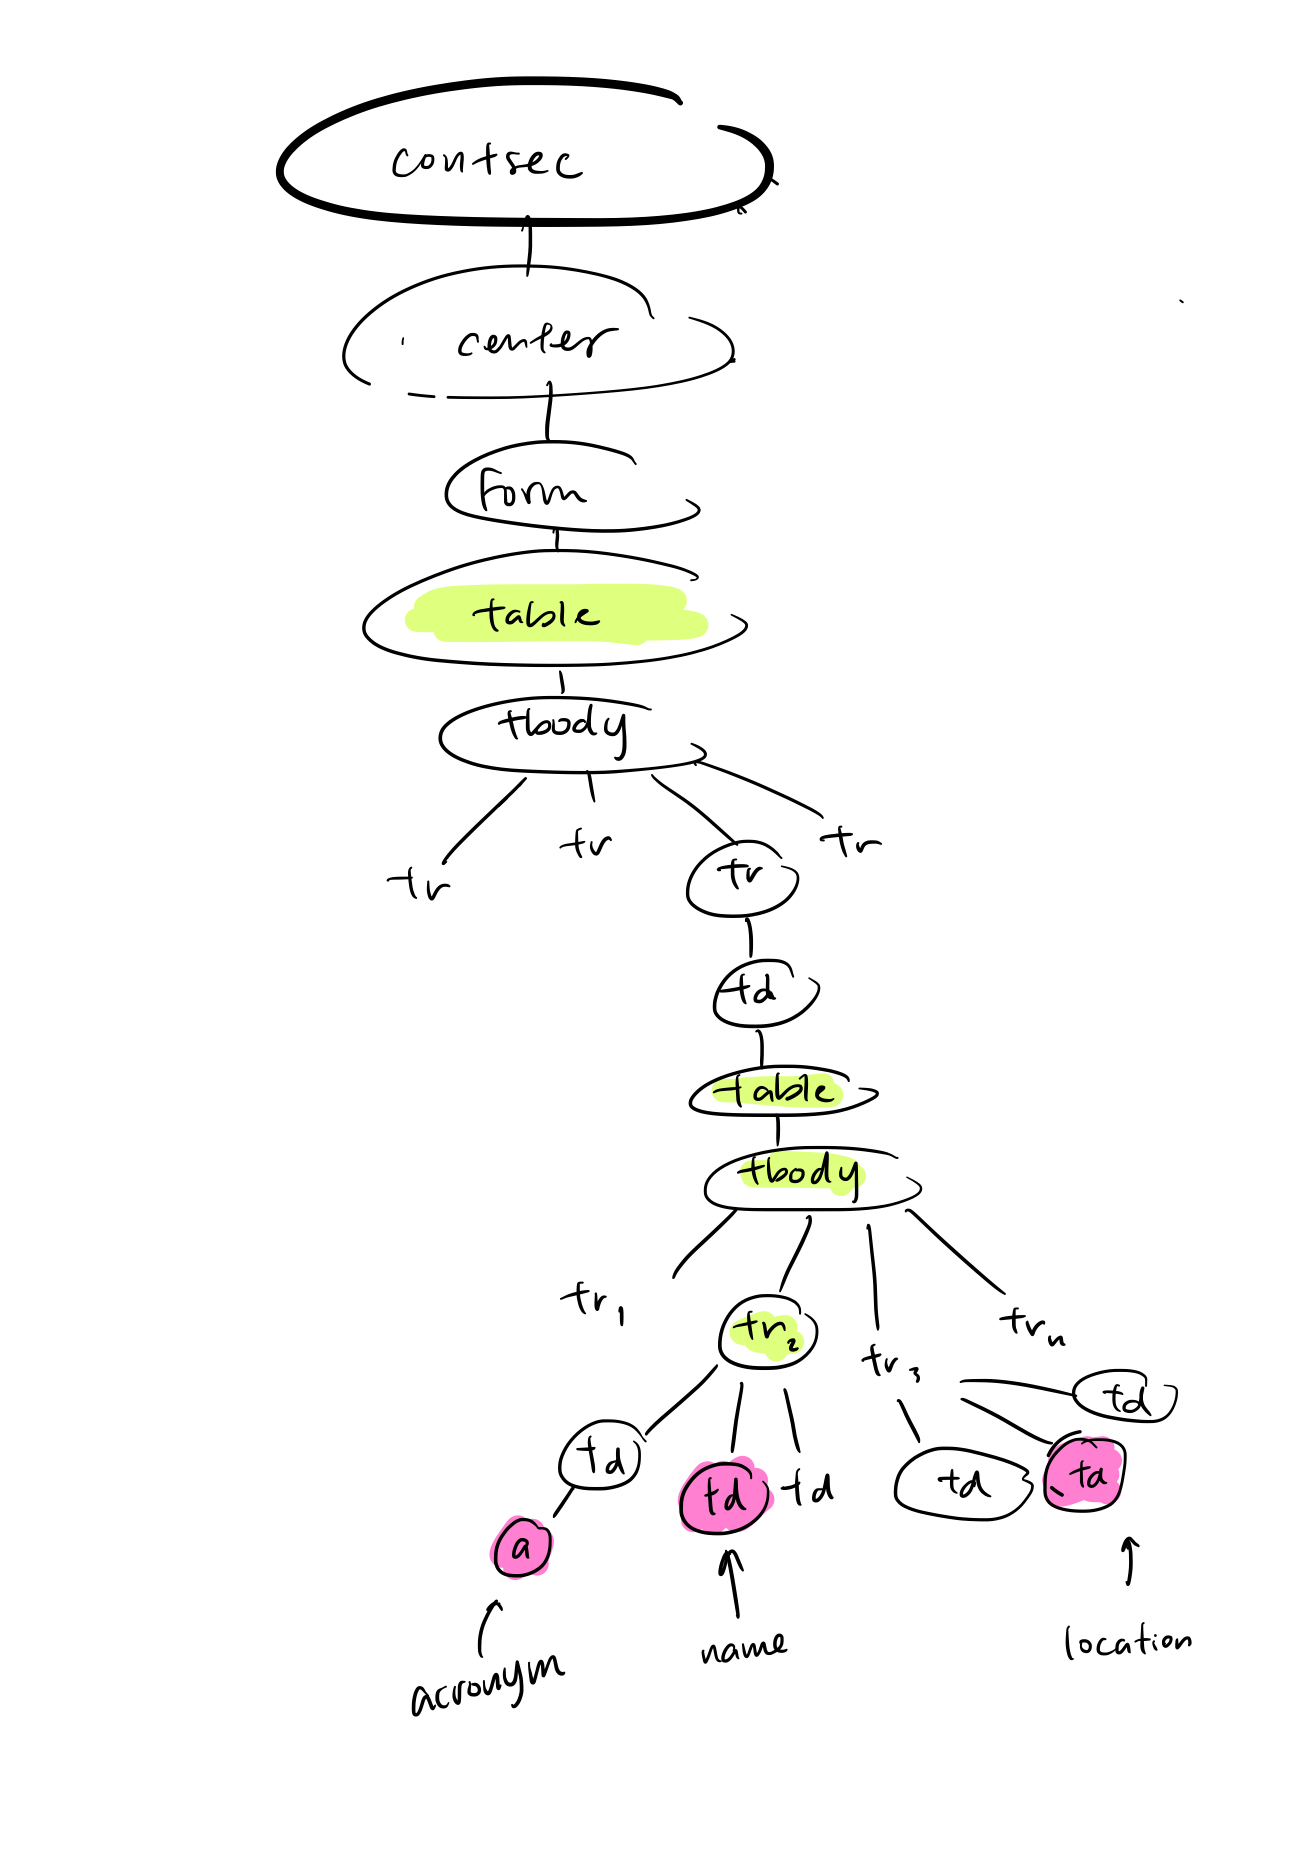 contsec
center
Form
table
tbody
tr
tr
tr
tr
td
table
tbody
tr1
tr2
tr3
trn
td
td
td
td
ta
td
a
acronym
name
location